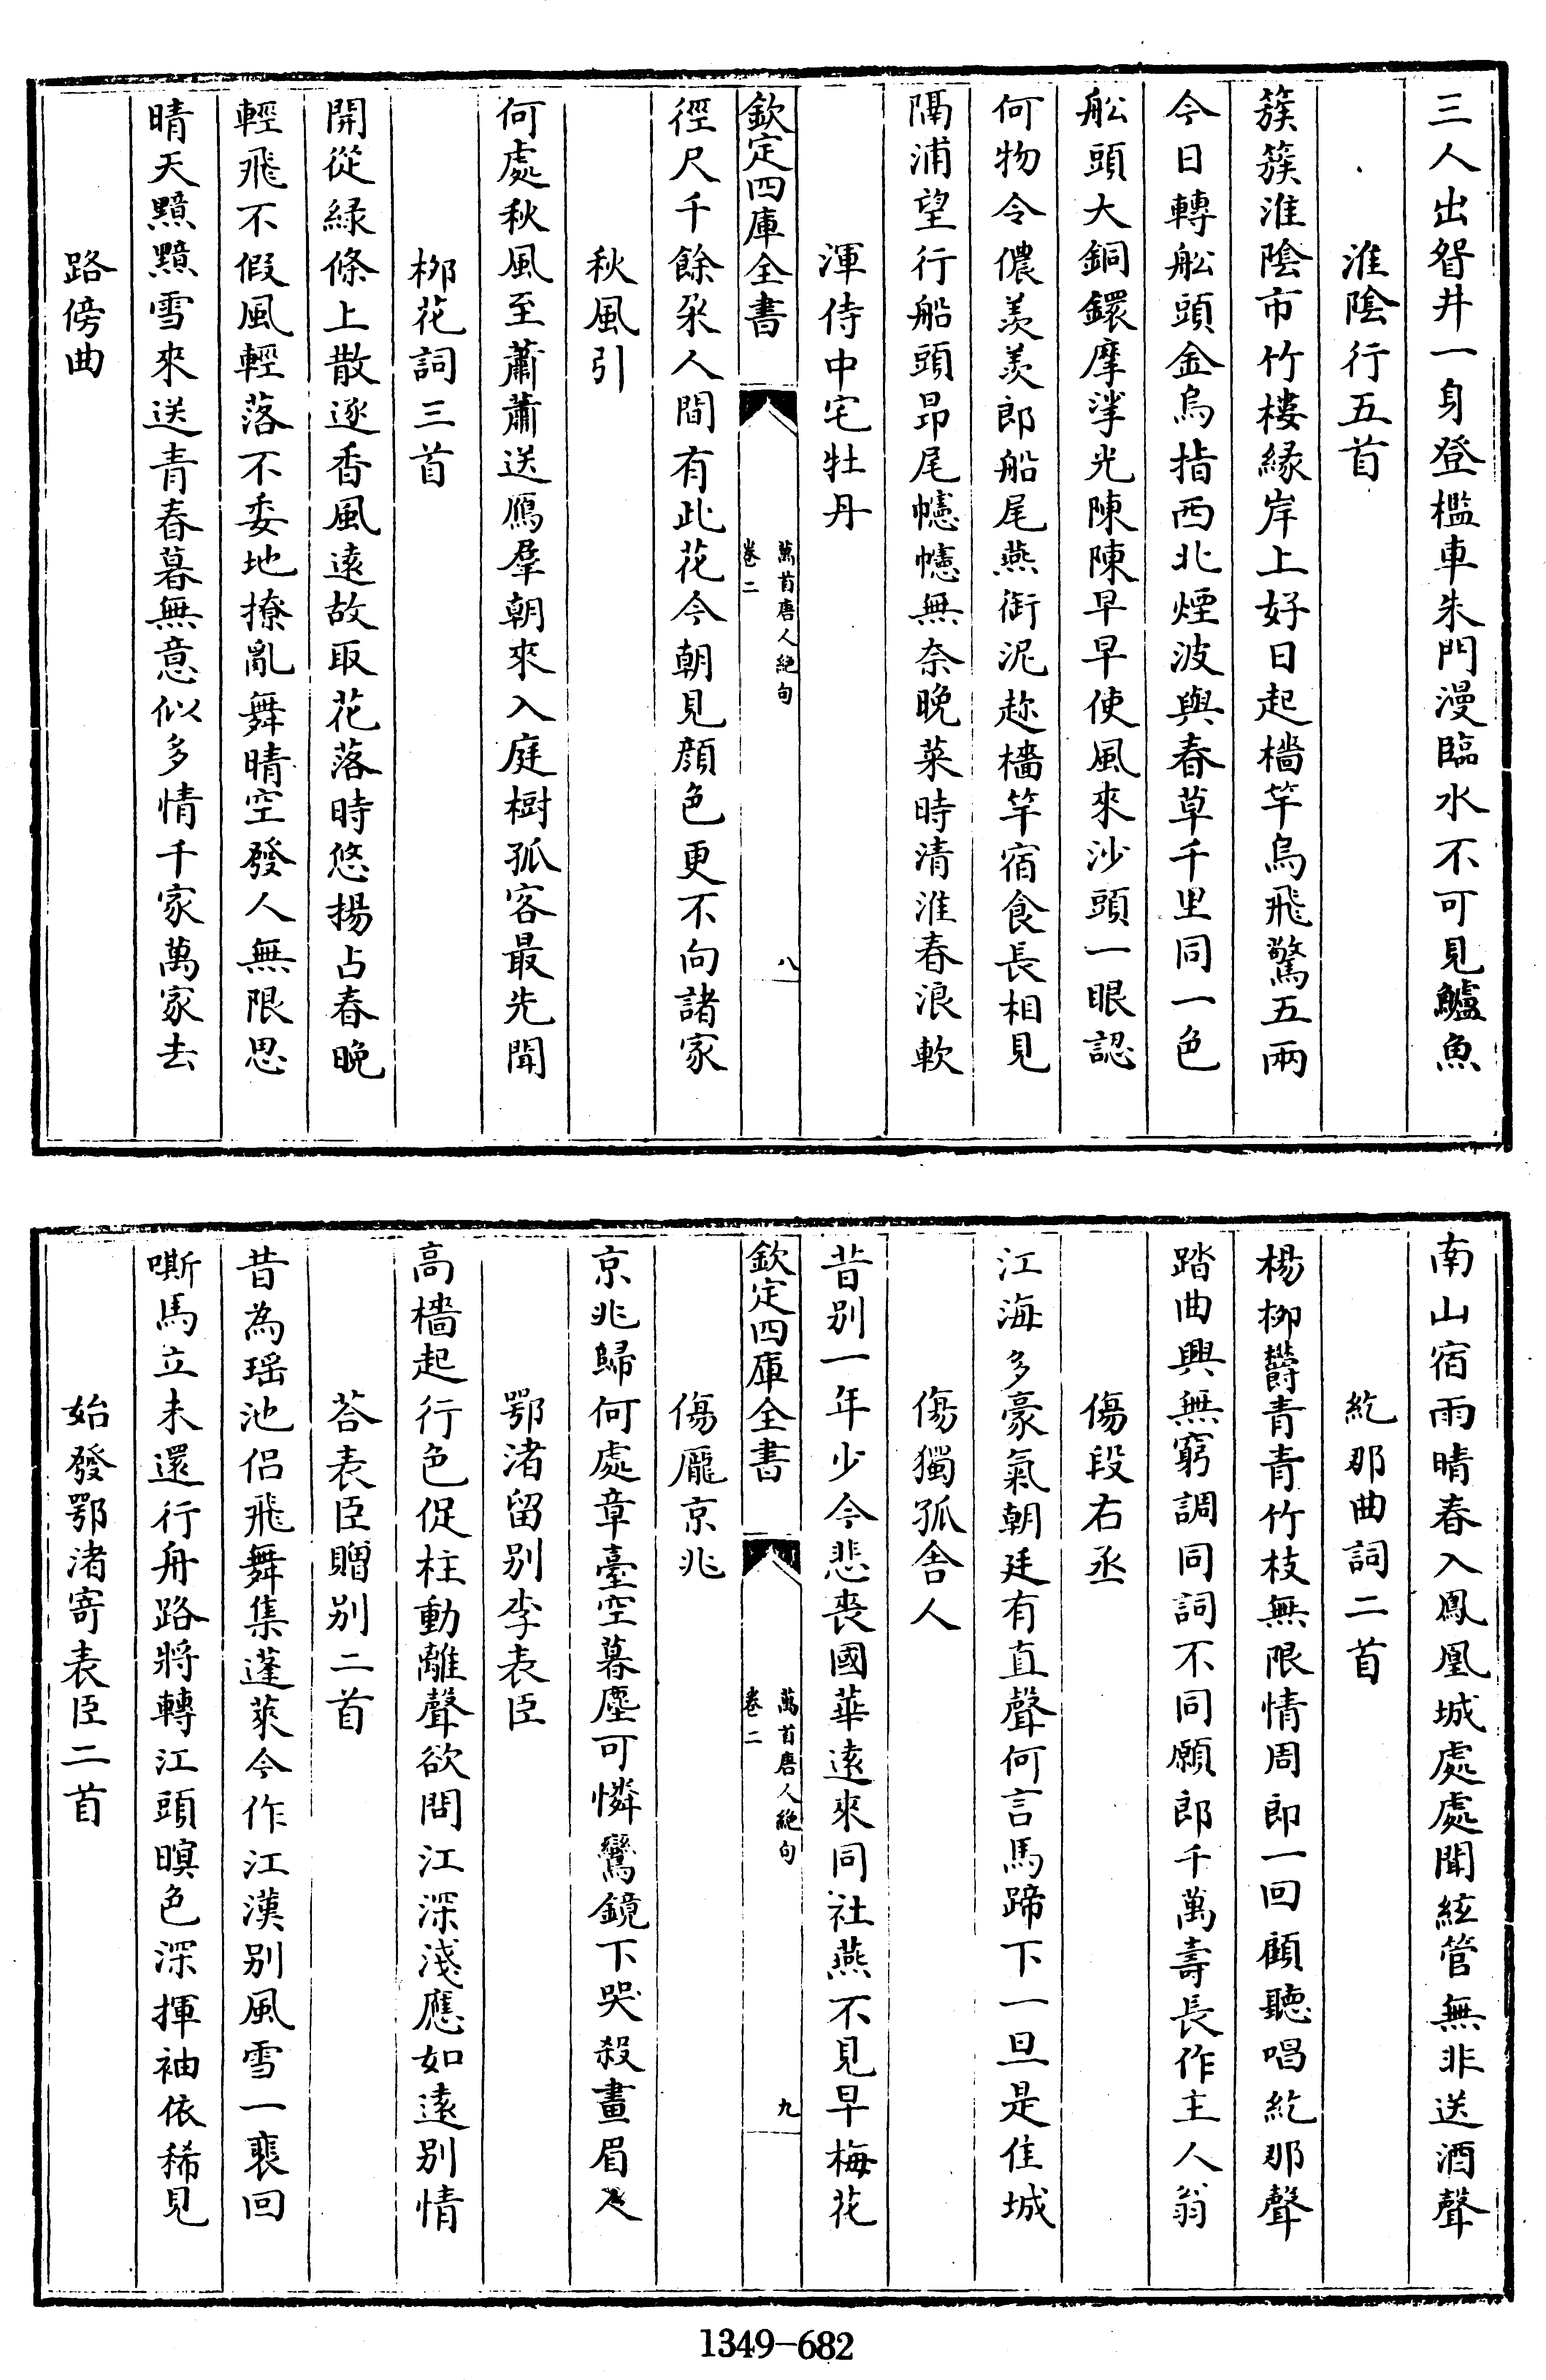 三人出眢井一身登檻車朱門漫臨水不可見鱸魚
淮陰行五首
簇簇淮陰市竹樓緣岸上好日起檣竿烏飛驚五兩
今日轉舩頭金烏指西北煙波與春草千里同一色
舩頭大銅鐶摩挲光陳陳早早使風來沙頭一眼認
何物令儂羨羨郎船尾燕銜泥趂檣竿宿食長相見
隔浦望行船頭昻尾幰幰無奈晚菜時清淮春浪軟
渾侍中宅牡丹
欽定四庫全書
萬首唐人絶句
卷二
八
徑尺千餘朵人間有此花今朝見顔色更不向諸家
秋風引
何處秋風至蕭蕭送鴈羣朝來入庭樹孤客最先聞
栁花詞三首
開從緑條上散逐香風逺故取花落時悠揚占春晚
輕飛不假風輕落不委地撩亂舞晴空發人無限思
晴天黯黯雪來送青春暮無意似多情千家萬家去
路傍曲
南山宿雨晴春入鳳凰城處處聞絃管無非送酒聲
紇那曲詞二首
楊栁欝青青竹枝無限情周郎一回顧聽唱紇那聲
踏曲興無窮調同詞不同願郎千萬壽長作主人翁
傷段右丞
江海多豪氣朝廷有直聲何言馬蹄下一旦是佳城
傷獨孤舍人
昔别一年少今悲喪國華逺來同社燕不見早梅花
欽定四庫全書
萬首唐人絶句
卷二
九
傷龎京兆
京兆歸何處章臺空暮塵可憐鸞鏡下哭殺畫眉人
鄂渚留别李表臣
高檣起行色促柱動離聲欲問江深淺應如逺别情
荅表臣贈别二首
昔為瑶池侣飛舞集蓬萊今作江漢别風雪一裴回
嘶馬立未還行舟路將轉江頭暝色深揮袖依稀見
始發鄂渚寄表臣二首
1349-682